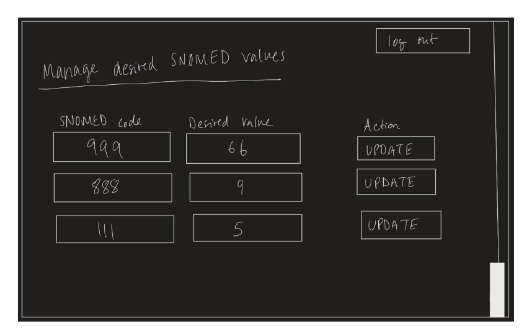 log out
Manage desired SNOMED values
SNOMED code Desired value Action
999 66 UPDATE
888 9 UPDATE
111 5 UPDATE